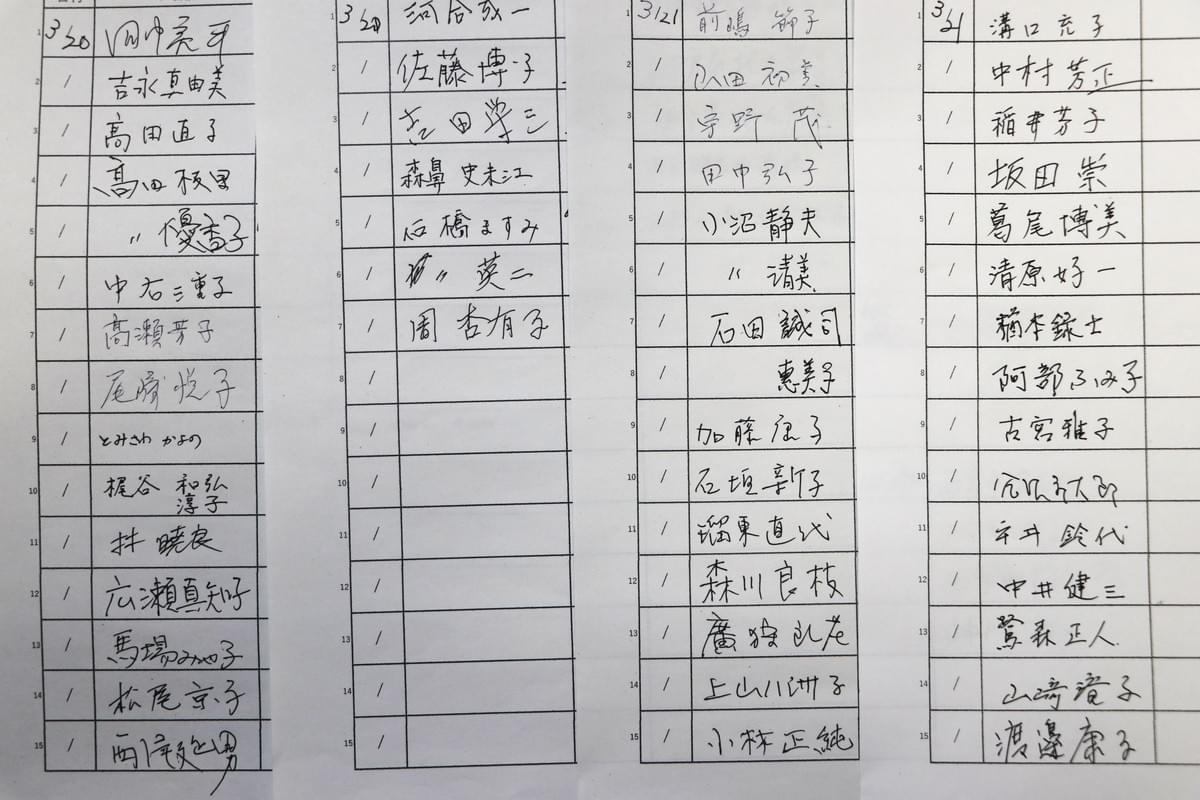 3/20 田中亮平
2 / 吉永真由美
3 / 高田直子
4 / 髙田 枝里
5 〃 優香子
6 / 中右三重子
7 / 高瀬芳子
8 / 尾﨑悦子
9 / とみさわ かよの
10 / 梶谷 和弘
淳子
11 / 林 曉良
12 / 広瀬真知子
13 / 馬場みや子
14 / 松尾京子
15 / 西
3/20 河合
2 / 佐藤博子
3 / 吉田学三
4 / 森鼻 史末江
5 / 石橋ますみ
6 / 〃 英二
7 / 周 杏有子
8 /
9 /
10 /
11 /
12 /
13 /
14 /
15 /
1 3/21 前嶋 節子
2 / 山田 初美
3 / 宇野 茂
4 / 田中弘子
5 / 小沼静夫
6 / 〃 清美
7 / 石田誠司
8 / 恵美子
9 / 加藤康子
10 / 石垣
11 / 瑠東直代
12 / 森川良枝
13 / 廣
14 / 上山八洲子
15 / 小林正純
1 3/21 溝口充子
2 / 中村芳正
3 / 稲井芳子
4 / 坂田 崇
5 / 葛尾博美
6 / 清原好一
7 / 楢本錄士
8 / 阿部ふみ子
9 / 古宮雅子
10 /
11 / 平井鈴代
12 / 中井健三
13 / 鷺森正人
14 / 山﨑澄子
15 / 渡邊康子